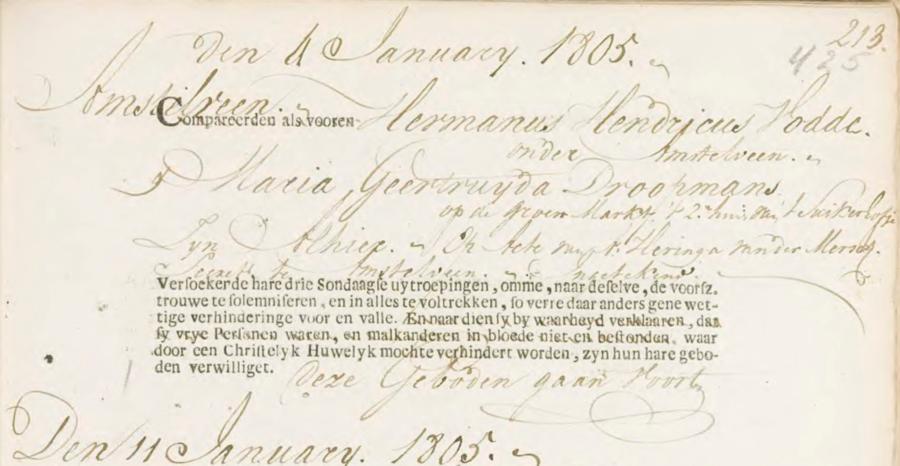 213.
425
Den 4 January. 1805.
Amstelveen.
Compareerden als vooren Hermanus Hendricus Vodde.
onder Amstelveen.
& Maria Geertruyda Droopmans
op de groen Markt, 't 2e huis van 't Suikerhofje
Zyn Alhier. Ek acte van H: Heringa van der Mersch
Secrets te Amstelveen. ingetekend.
Versoekende hare drie Sondaagse uytroepingen, omme, naar deselve, de voorsz.
trouwe te solemniseren, en in alles te voltrekken, so verre daar anders gene wet-
tige verhinderinge voor en valle. Æn naar dien sy by waarheyd verklaaren, dat
sy vrye Personen waren, en malkanderen in bloede niet en bestonden, waar
door een Christelyk Huwelyk mochte verhindert worden, zyn hun hare gebo-
den verwilliget.
deze Geboden gaan voort
Den 11 January. 1805.